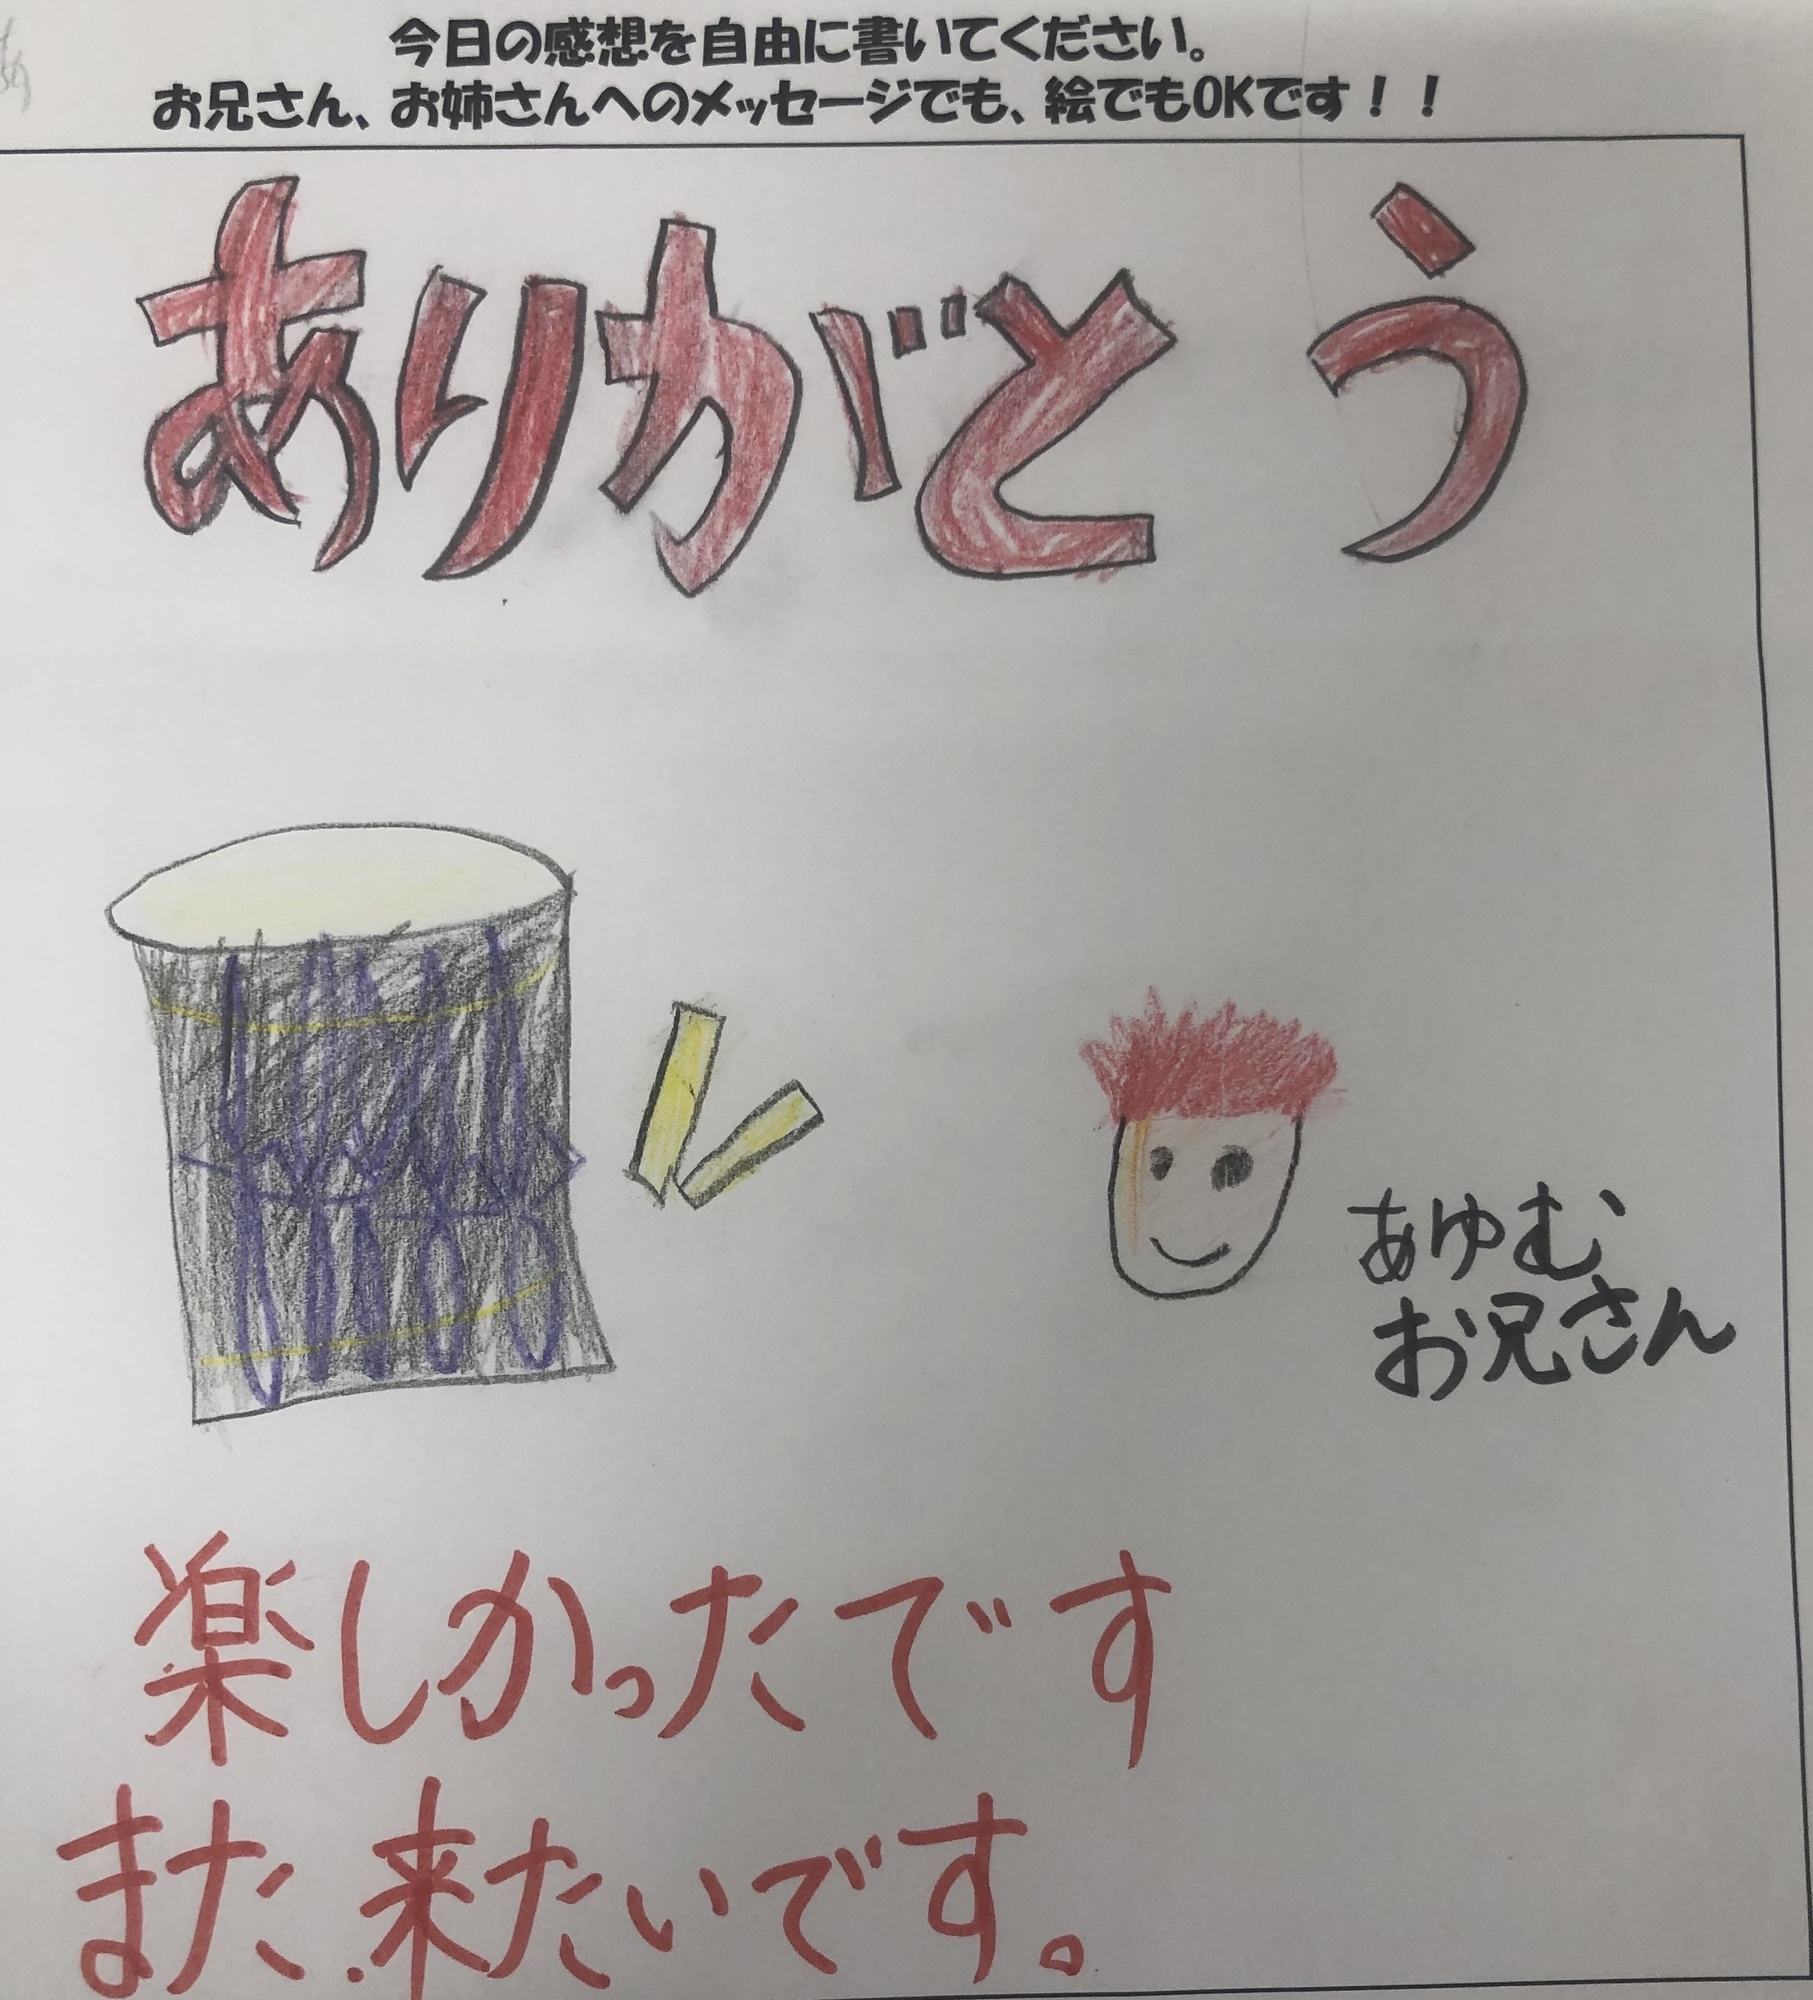 今日の感想を自由に書いてください。
お兄さん、お姉さんへのメッセージでも、絵でもOKです！！
ありがとう
あゆむ
お兄さん
楽しかったです
また.来たいです。